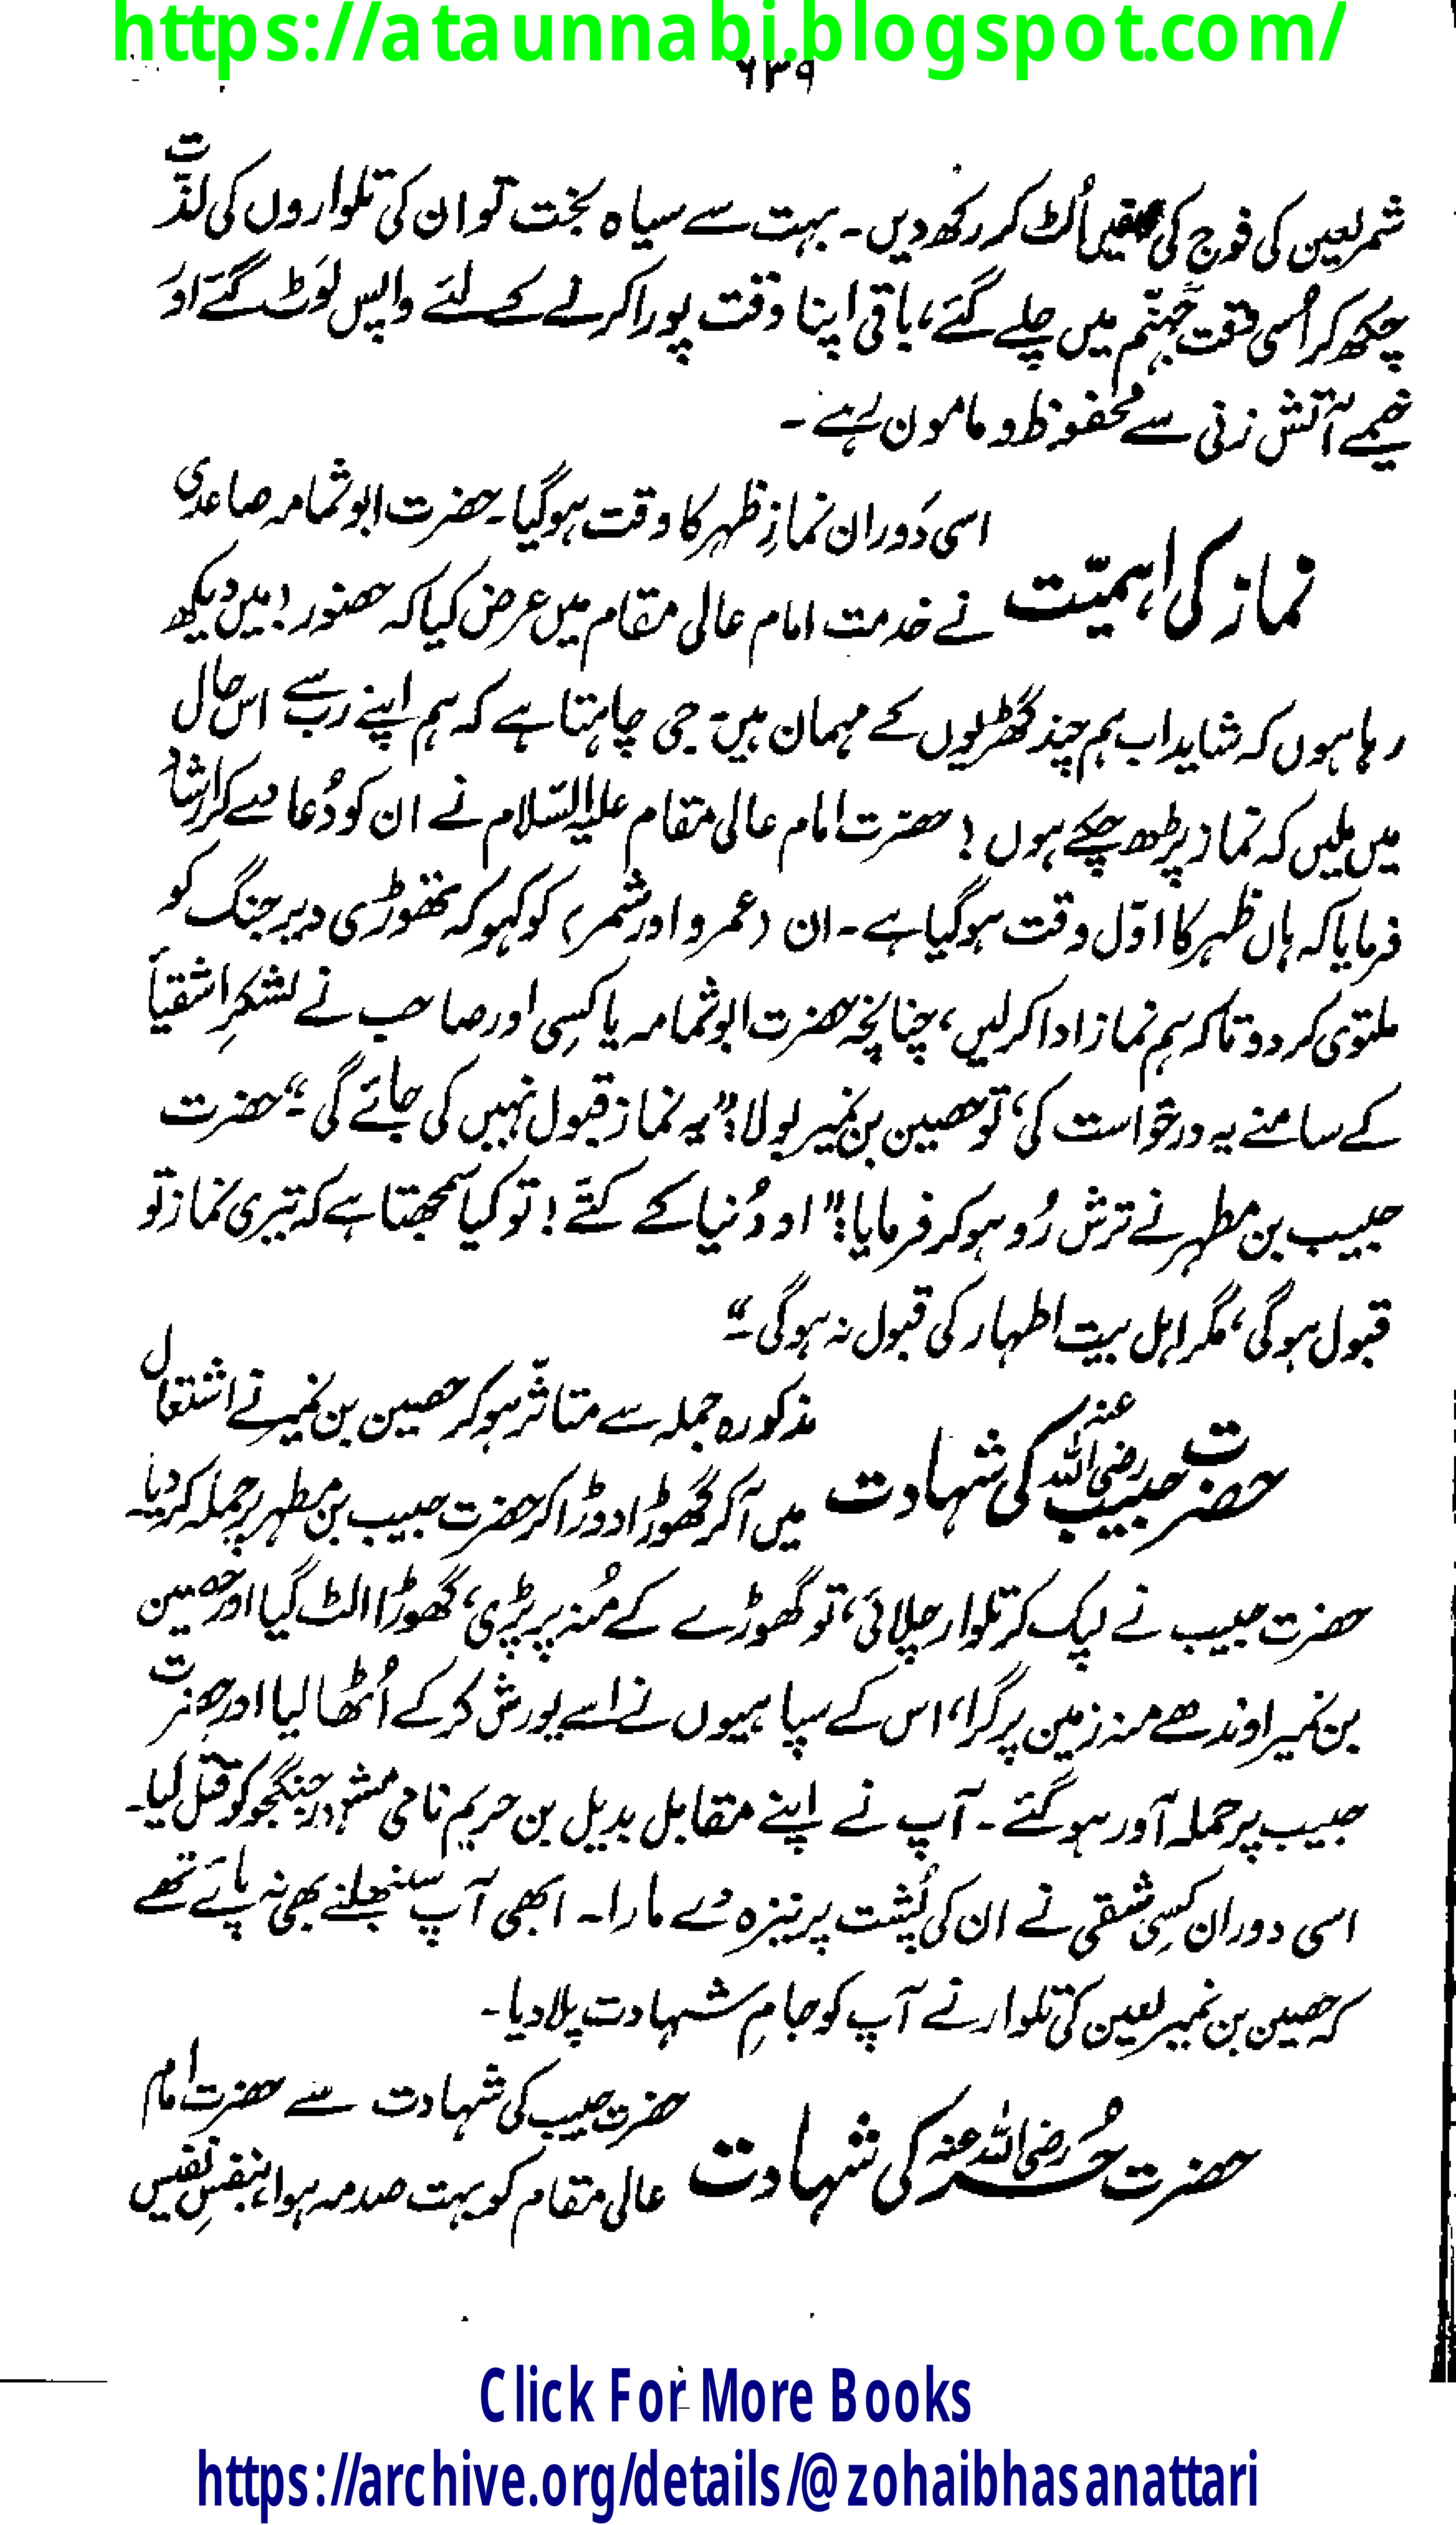 https://ataunnabi.blogspot.com/
۶۳۹
شمر لعین کی فوج کی صفیں اُلٹ کر رکھ دیں۔ بہت سے سیاہ بخت تو ان کی تلواروں کی لذّت
چکھ کر اُسی وقت جہنّم میں چلے گئے، باقی اپنا وقت پورا کرنے کے لئے واپس لَوٹ گئے اور
خیمے آتش زنی سے محفوظ و مامون رہے ۔
نماز کی اہمیّت
اسی دَوران نمازِ ظہر کا وقت ہوگیا۔ حضرت ابو ثمامہ صاعدی
نے خدمت امام عالی مقام میں عرض کیا کہ حضور ! میں دیکھ
رہا ہوں کہ شاید اب ہم چند گھڑیوں کے مہمان ہیں۔ جی چاہتا ہے کہ ہم اپنے رب سے اس حال
میں ملیں کہ نماز پڑھ چکے ہوں ! حضرت امام عالی مقام علیہ السّلام نے ان کو دُعا دے کر ارشاد
فرمایا کہ ہاں ظہر کا اوّل وقت ہوگیا ہے ۔ ان (عمرو اور شمر) کو کہو کہ تھوڑی دیر جنگ کو
ملتوی کر دو تاکہ ہم نماز ادا کرلیں، چنانچہ حضرت ابو ثمامہ یا کسِی اور صاحب نے لشکرِ اشقیأ
کے سامنے یہ درخواست کی، تو حصین بن نمیر بولا: ”یہ نماز قبول نہیں کی جائے گی ۔“ حضرت
حبیب بن مطہر نے ترش رُو ہو کر فرمایا: ”او دُنیا کے کتّے ! تو کیا سمجھتا ہے کہ تیری نماز تو
قبول ہوگی، مگر اہل بیت اطہار کی قبول نہ ہوگی ۔“
حضرت حبیب رضی اللہ عنہ کی شہادت
مذکورہ جملہ سے متاثّر ہو کر حصین بن نمیر نے اشتعال
میں آکر گھوڑا دوڑا کر حضرت حبیب بن مطہر پر حملہ کر دیا۔
حضرت حبیب نے لپک کر تلوار چلائی، تو گھوڑے کے مُنہ پر پڑی، گھوڑا الٹ گیا اور حصین
بن نمیر اوندھے منہ زمین پر گرا، اس کے سپاہیوں نے اسے یورش کر کے اُٹھا لیا اور حضرت
حبیب پر حملہ آور ہو گئے ۔ آپ نے اپنے مقابل بدیل بن حریم نامی مشہور جنگجو کو قتل کیا۔
اسی دوران کسِی شقی نے ان کی پُشت پر نیزہ دے مارا۔ ابھی آپ سنبھلنے بھی نہ پائے تھے
کہ حصین بن نمیر لعین کی تلوار نے آپ کو جامِ شہادت پلا دیا ۔
حضرت حُر رضی اللہ عنہ کی شہادت
حضرت حبیب کی شہادت سے حضرت امام
عالی مقام کو بہت صدمہ ہوا، بنفسِ نفیس
Click For More Books
https://archive.org/details/@zohaibhasanattari